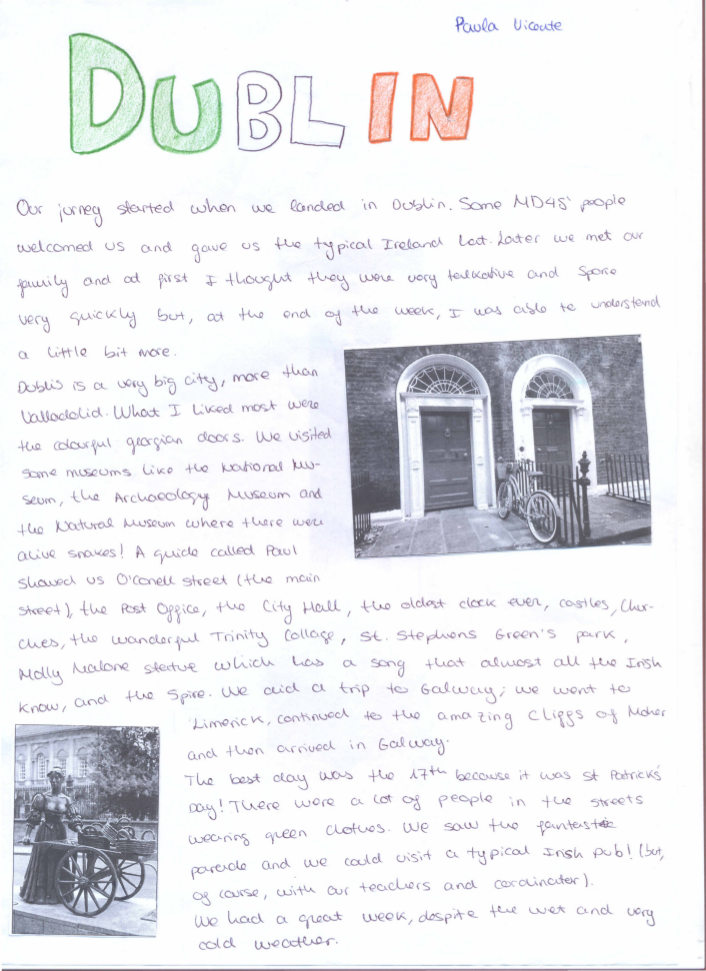 Paula Vicente
DUBLIN
Our jurney started when we landed in Dublin. Some MD48' people
welcomed us and gave us the typical Ireland hat. Later we met our
family and at first I thought they were very talkative and spoke
very quickly but, at the end of the week, I was able to understand
a little bit more.
Dublin is a very big city, more than
Valladolid. What I liked most were
the colourful georgian doors. We visited
some museums like the National Mu-
seum, the Archaeology Museum and
the Natural Museum where there were
alive snakes! A guide called Paul
showed us O'Conell street (the main
street), the Post Office, the City Hall, the oldest clock ever, castles, Chur-
ches, the wanderful Trinity Collage, St. Stephens Green's park,
Molly Malone statue which has a song that almost all the Irish
know, and the Spire. We did a trip to Galway; we went to
Limerick, continued to the amazing Cliffs of Moher
and then arrived in Galway.
The best day was the 17th because it was St Patrick's
Day! There were a lot of people in the streets
wearing green clothes. We saw the
parade and we could visit a typical Irish pub! (but,
of course, with our teachers and cordinator).
We had a great week, despite the wet and very
cold weather.